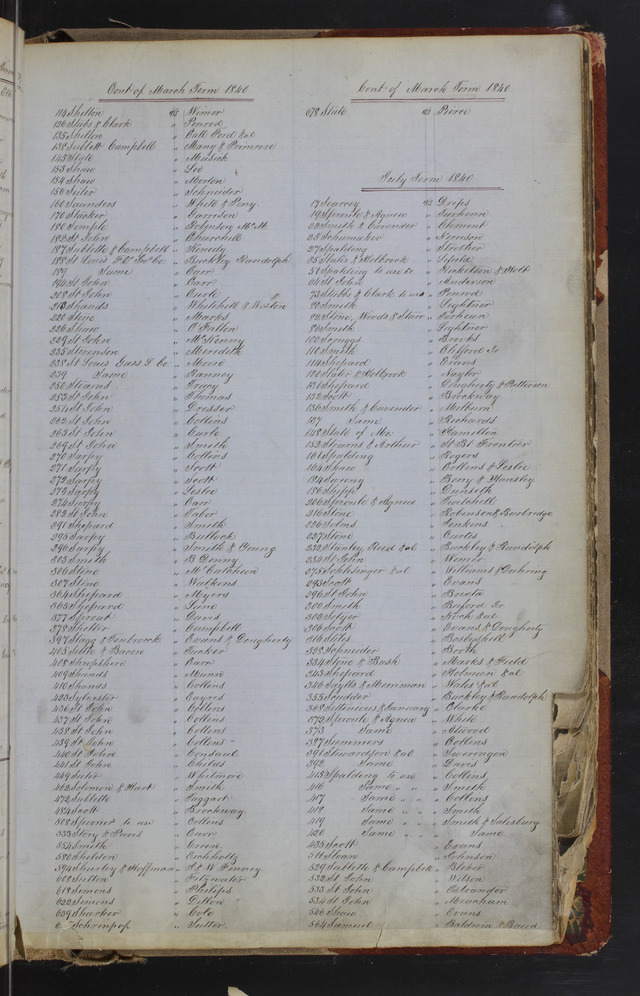 Cont of March Term 1840
114 Shelton vs Wimer
126 Stubs & Clark " Penrod
135 Shelton " Call Ford & al
138 Sublett Campbell " Many & Primrose
145 State " Musick
153 Shaw " Lee
154 Shaw " Morton
156 Suter " Schneider
160 Saunders " White & Perry
170 Stocker " Garrison
180 Semple " Robinson
182 St John " Churchill
187 Sublette & Campbell " Kenedy
188 St Louis " Buckley Randolph
189 Same " Carr
194 St John " Carr
208 St John " Curle
213 Shands " Whitehill & Weston
220 Stone " Marks
226 Shaw " O'Fallon
229 St John " McKenny
235 Stevenson " Meredith
238 St Louis Gass L Co " Moore
239 Same " Ranney
250 Stearns " Tracy
253 St John " Thomas
257 St John " Dresser
262 St John " Collins
263 St John " Curle
269 St John " Smith
270 Sarpy " Collins
271 Sarpy " Scott
272 Sarpy " Scott
273 Sarpy " Leslie
274 Sarpy " Carr
282 St John " Tabor
291 Shepard " Smith
295 Sarpy " Bullock
296 Sarpy " Smith & Young
303 Smith " B Denny
306 Stone " McCutcheon
307 Stone " Watkins
364 Shepard " Myers
365 Shepard " Lane
377 Sproat " Davis
378 Shelter " Campbell
397 Stagg & Tenbrook " Evans & Dougherty
405 Settle & Bacon " Tucker
408 Shropshire " Carr
409 Shands " Munn
410 Shands " Collins
423 Sylvester " Engres
436 St John " Collins
437 St John " Collins
438 St John " Collins
439 St John " Collins
440 St John " Consaul
441 St John " Childs
449 Suter " Whitmore
462 Solomon & Hart " Smith
472 Sublette " Taggart
484 Scott " Brockway
508 Spooner to use " Collins
533 Story & Purvis " Carr
554 Smith " Coren
580 Sheldon " Eschholtz
594 Shurley & Hoffman " S & W Finney
608 Sutton " Fitzwater
618 Simons " Philips
622 Simons " Dillon
639 Sharker " Cole
Suttor
Cont of March Term 1840
678 State vs Pierce
July Term 1840
17 Searcy vs Drips
19 Sproule & Agnew "
23 Smith & Cavender " Clement
25 Schumaker " Perdew
27 Spalding " Strother
35 Slater & Holbrook "
57 Spalding to use &c " Hickelton & Wolt
64 St John " Anderson
73 Stubbs & Clark to use " Penrod
80 Smith " Lightner
82 Stone, Woods & Starr "
86 Smith " Lightner
100 Scruggs " Brooks
110 Smith " Clifford Jr
114 Shepard " Evans
120 Slater & Holbrook " Naylor
131 Shepard " Dougherty & Patterson
132 Scott " Brockway
136 Smith & Cavender " Melburn
137 Same " Richards
148 State of Mo. " Hamilton
153 Stearns & Arthur " St Bt Frontier
161 Spalding " Rogers
164 Shaw " Collins & Leslie
184 Swiney " Berry & Hensley
186 Sapp " Dunseth
206 Sproule & Agnew " Twitchell
216 Stone " Robinson & Burbridge
226 Solms " Jenkins
227 Stone " Curtis
232 Stanley Reed & al " Buckley & Randolph
234 St John " Weaver
275 Schlesinger & al " Williams & Duhring
293 Scott " Evans
296 St John " Brenta
300 Smith " Buford Jr
302 Selzer " Koch & al
308 Scott " Evans & Dougherty
316 Stiles " Berbyshell
328 Schneider " Booth
334 Stone & Bush " Marks & Field
343 Shepard " Holmen & al
346 Sayles & Merriman " Wales & al
355 Scudder " Buckley & Randolph
368 Settenious & January " Clarke
372 Sproule & Agnew " White
373 Same " Atwood
387 Summers " Collins
391 Stewardson & al " Sweringen
392 Same " Davis
415 Spalding to use " Collins
416 Same " " Smith
417 Same " " Collins
418 Same " " Smith
419 Same " " Smith & Salesbury
420 Same " " Same
435 Scott " Evans
511 Sloan " Johnson
529 Sublette & Campbell " Bloker
532 St John " Wilson
533 St John " Colvander
534 St John " Meachum
546 Shaw " Evans
564 Samuel " Baldwin & Baird